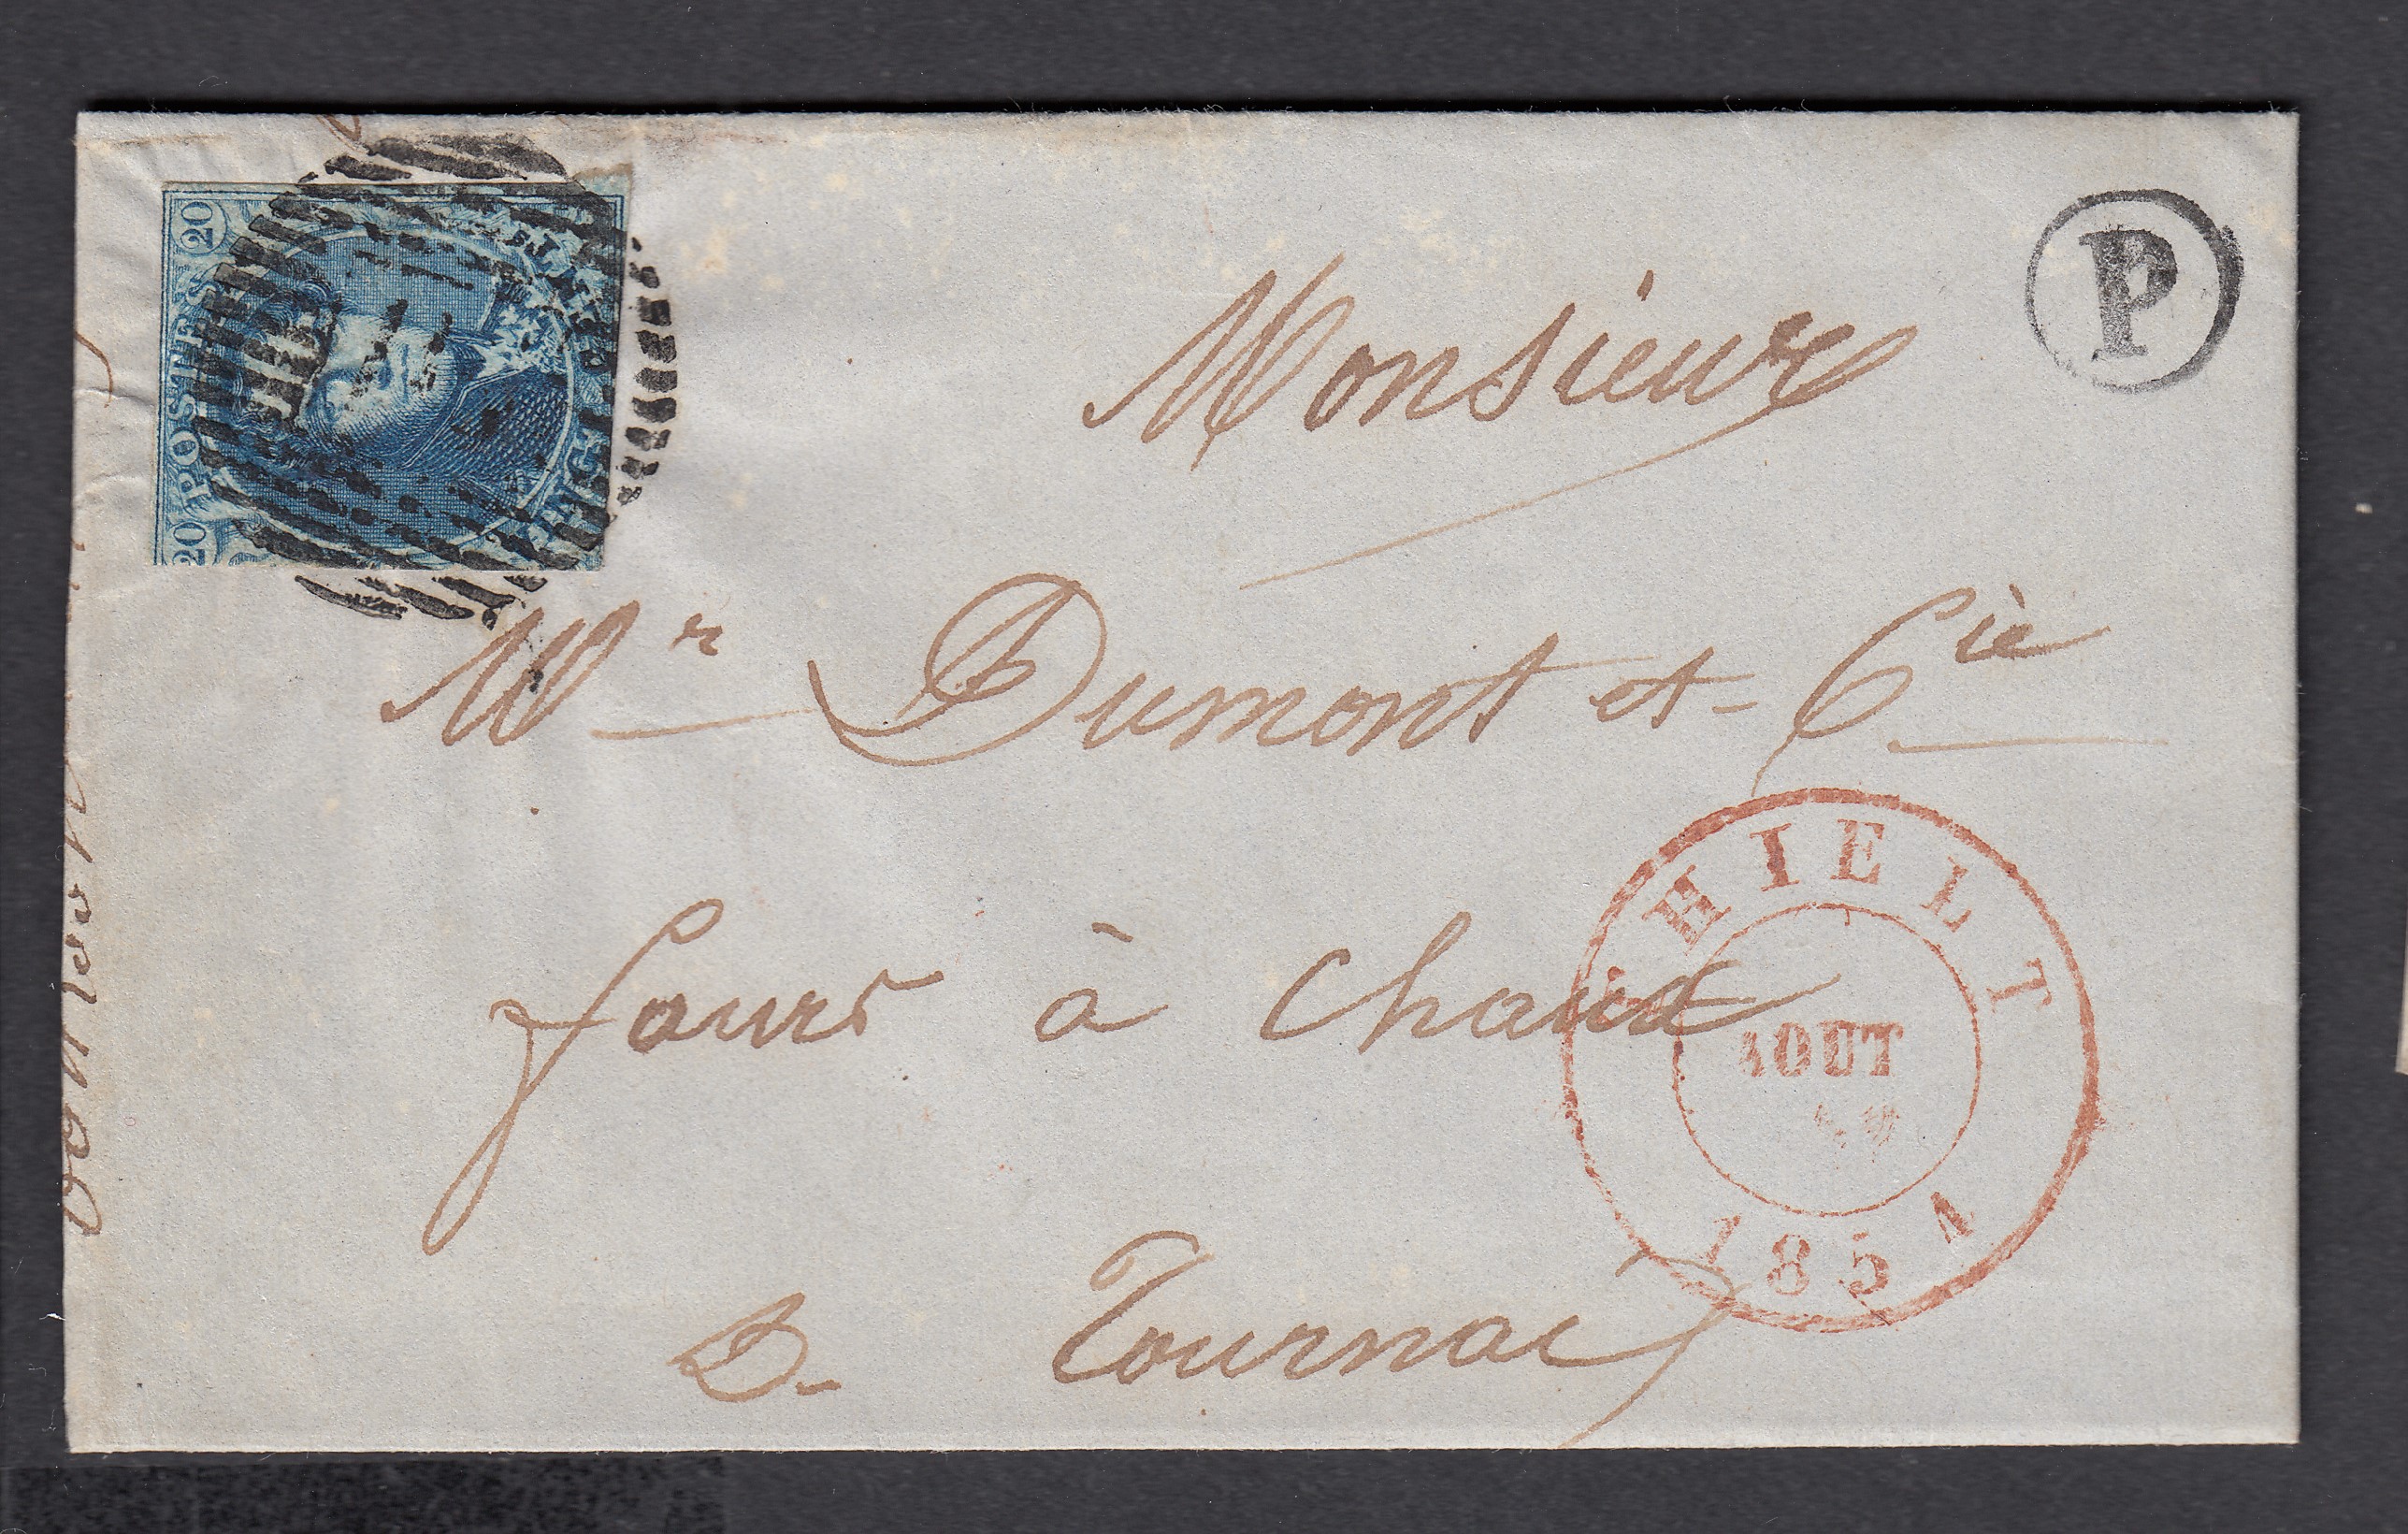 20 POSTES 20
P
Monsieur
Mr Dumont et Cie
fours à chaux
THIELT
AOUT
1851
à Tournai